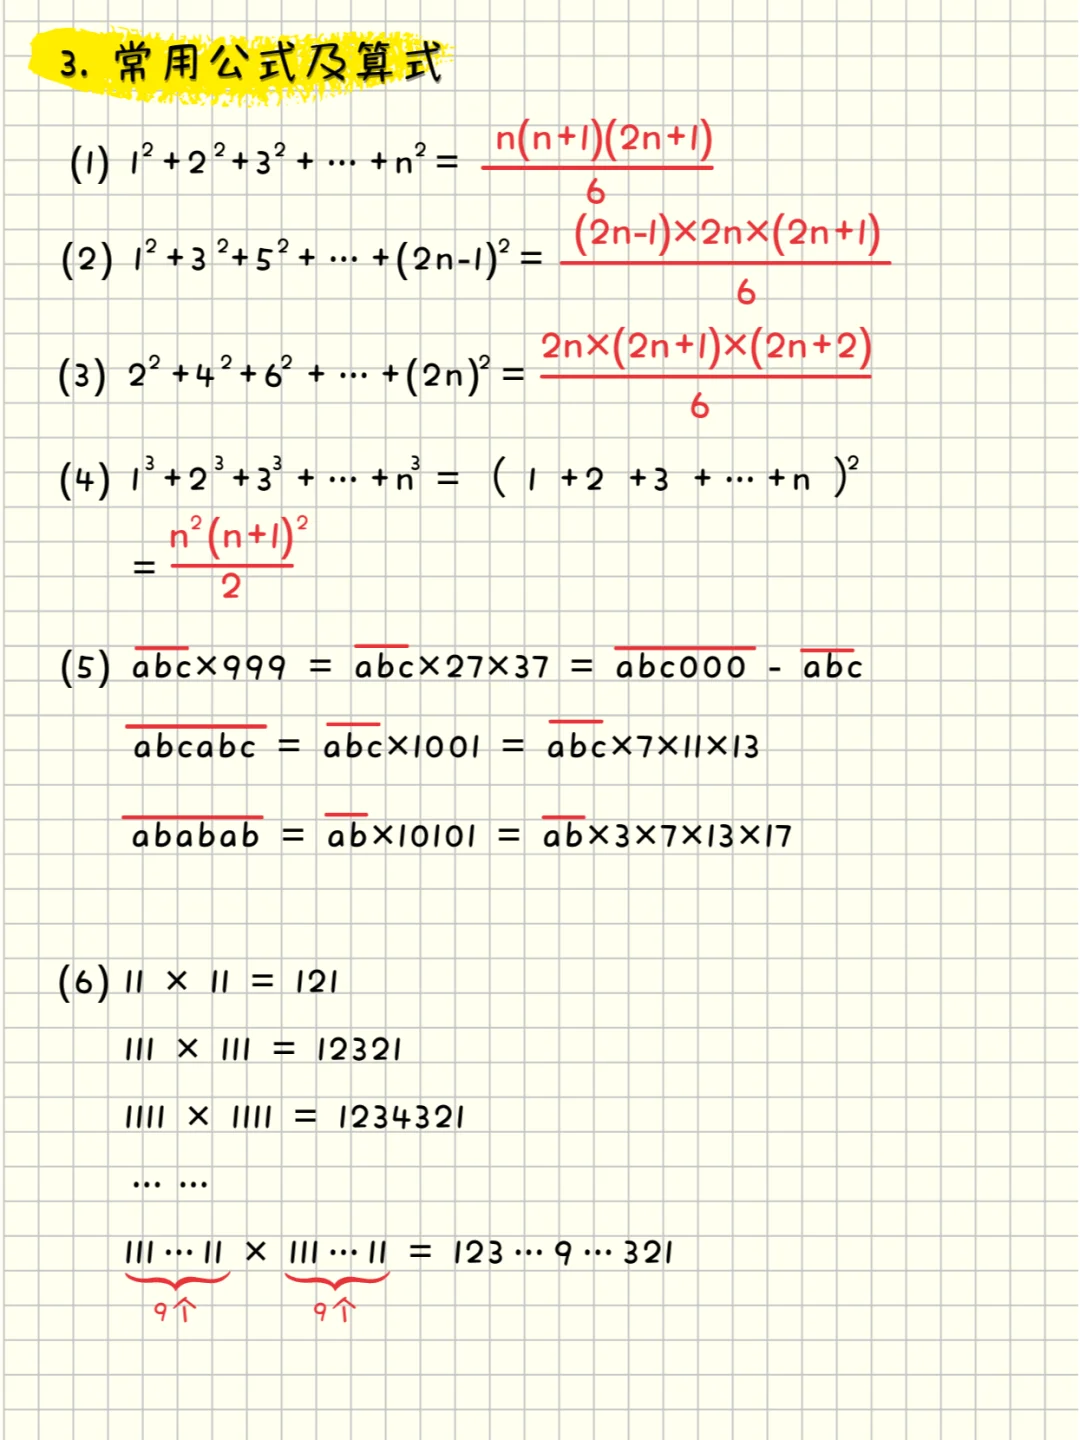 3. 常用公式及算式
(1) 1²+2²+3²+…+n²= n(n+1)(2n+1)/6
(2) 1²+3²+5²+…+(2n-1)²= (2n-1)×2n×(2n+1)/6
(3) 2²+4²+6²+…+(2n)²= 2n×(2n+1)×(2n+2)/6
(4) 1³+2³+3³+…+n³= (1+2+3+…+n)²
= n²(n+1)²/2
(5) a̅b̅c̅×999 = a̅b̅c̅×27×37 = a̅b̅c̅0̅0̅0̅ - a̅b̅c̅
a̅b̅c̅a̅b̅c̅ = a̅b̅c̅×1001 = a̅b̅c̅×7×11×13
a̅b̅a̅b̅a̅b̅ = a̅b̅×10101 = a̅b̅×3×7×13×17
(6) 11 × 11 = 121
111 × 111 = 12321
1111 × 1111 = 1234321
… …
111…11 × 111…11 = 123…9…321
9个 9个